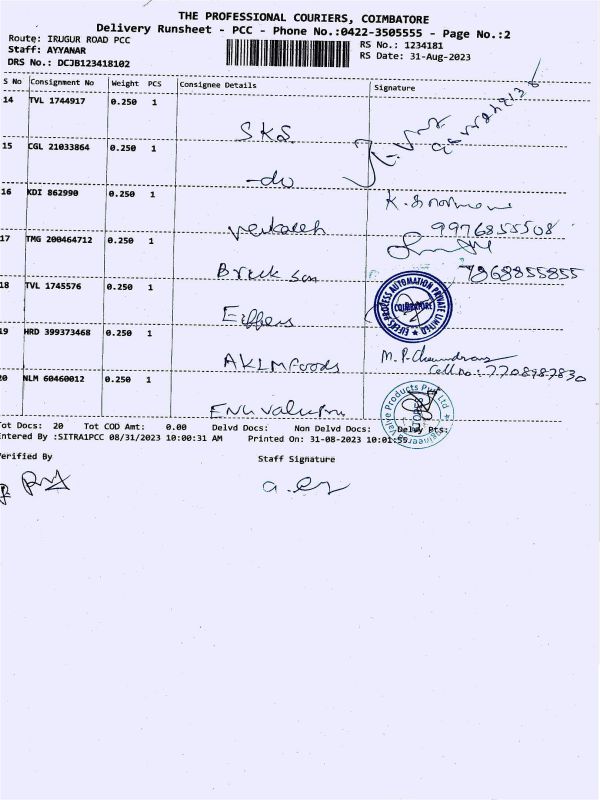 THE PROFESSIONAL COURIERS, COIMBATORE
Delivery Runsheet - PCC - Phone No.:0422-3505555 - Page No.:2
Route: IRUGUR ROAD PCC
Staff: AYYANAR
DRS No.: DCJB123418102
RS No.: 1234181
RS Date: 31-Aug-2023
S No Consignment No Weight PCS Consignee Details Signature
14 TVL 1744917 0.250 1
SKS
15 CGL 21033864 0.250 1
-do
16 KDI 862990 0.250 1
9976855508
17 TMG 200464712 0.250 1
Brick
7868855855
18 TVL 1745576 0.250 1
EIFERS PROCESS AUTOMATION PRIVATE LIMITED
COIMBATORE
Eiffers
19 HRD 399373468 0.250 1
AKLM Foods
M. P. Chandran
Cell no: 7708987830
20 NLM 60460012 0.250 1
Valve Products Pvt Ltd
STORES
Tot Docs: 20 Tot COD Amt: 0.00 Delvd Docs: Non Delvd Docs: Delvy Pts:
Entered By :SITRA1PCC 08/31/2023 10:00:31 AM Printed On: 31-08-2023 10:01:55
Verified By Staff Signature